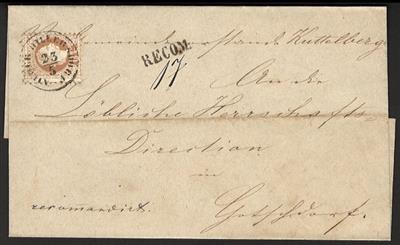 Vom Gemeindevorstande Kuttelberg
RECOM
23
5
17
An die
Löbliche Herrschafts-
Direction
in
recomandirt.
Gotschdorf.